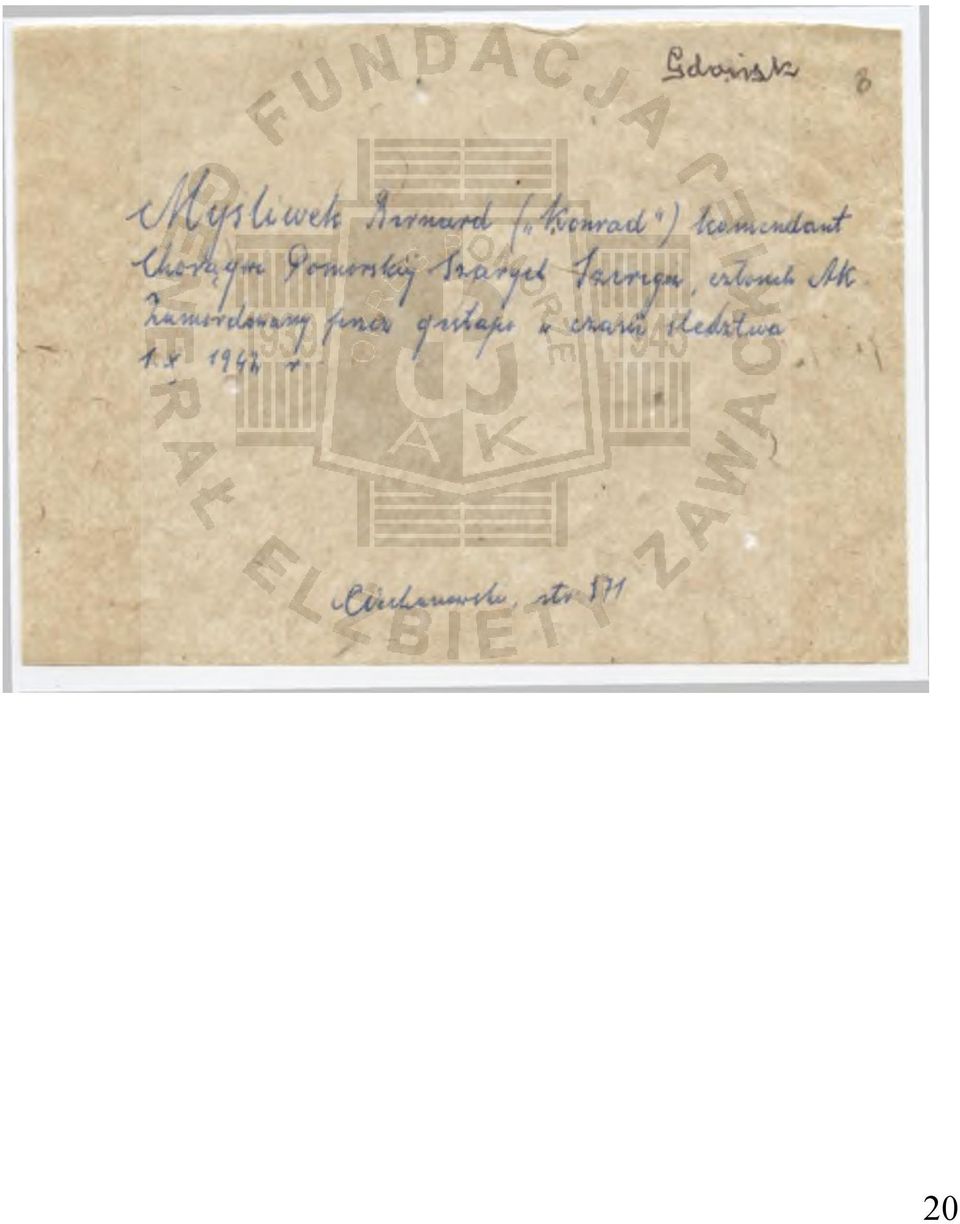 Gdańsk 8
Myśliwek Bernard („Konrad") komendant
Chorągwi Pomorskiej Szarych Szeregów, członek AK.
Zamordowany przez gestapo w czasie śledztwa
1.X 1942 r.
Ciechanowski, str. 171
FUNDACJA GENERAŁ ELŻBIETY ZAWACKIEJ
1939
1945
AK
20